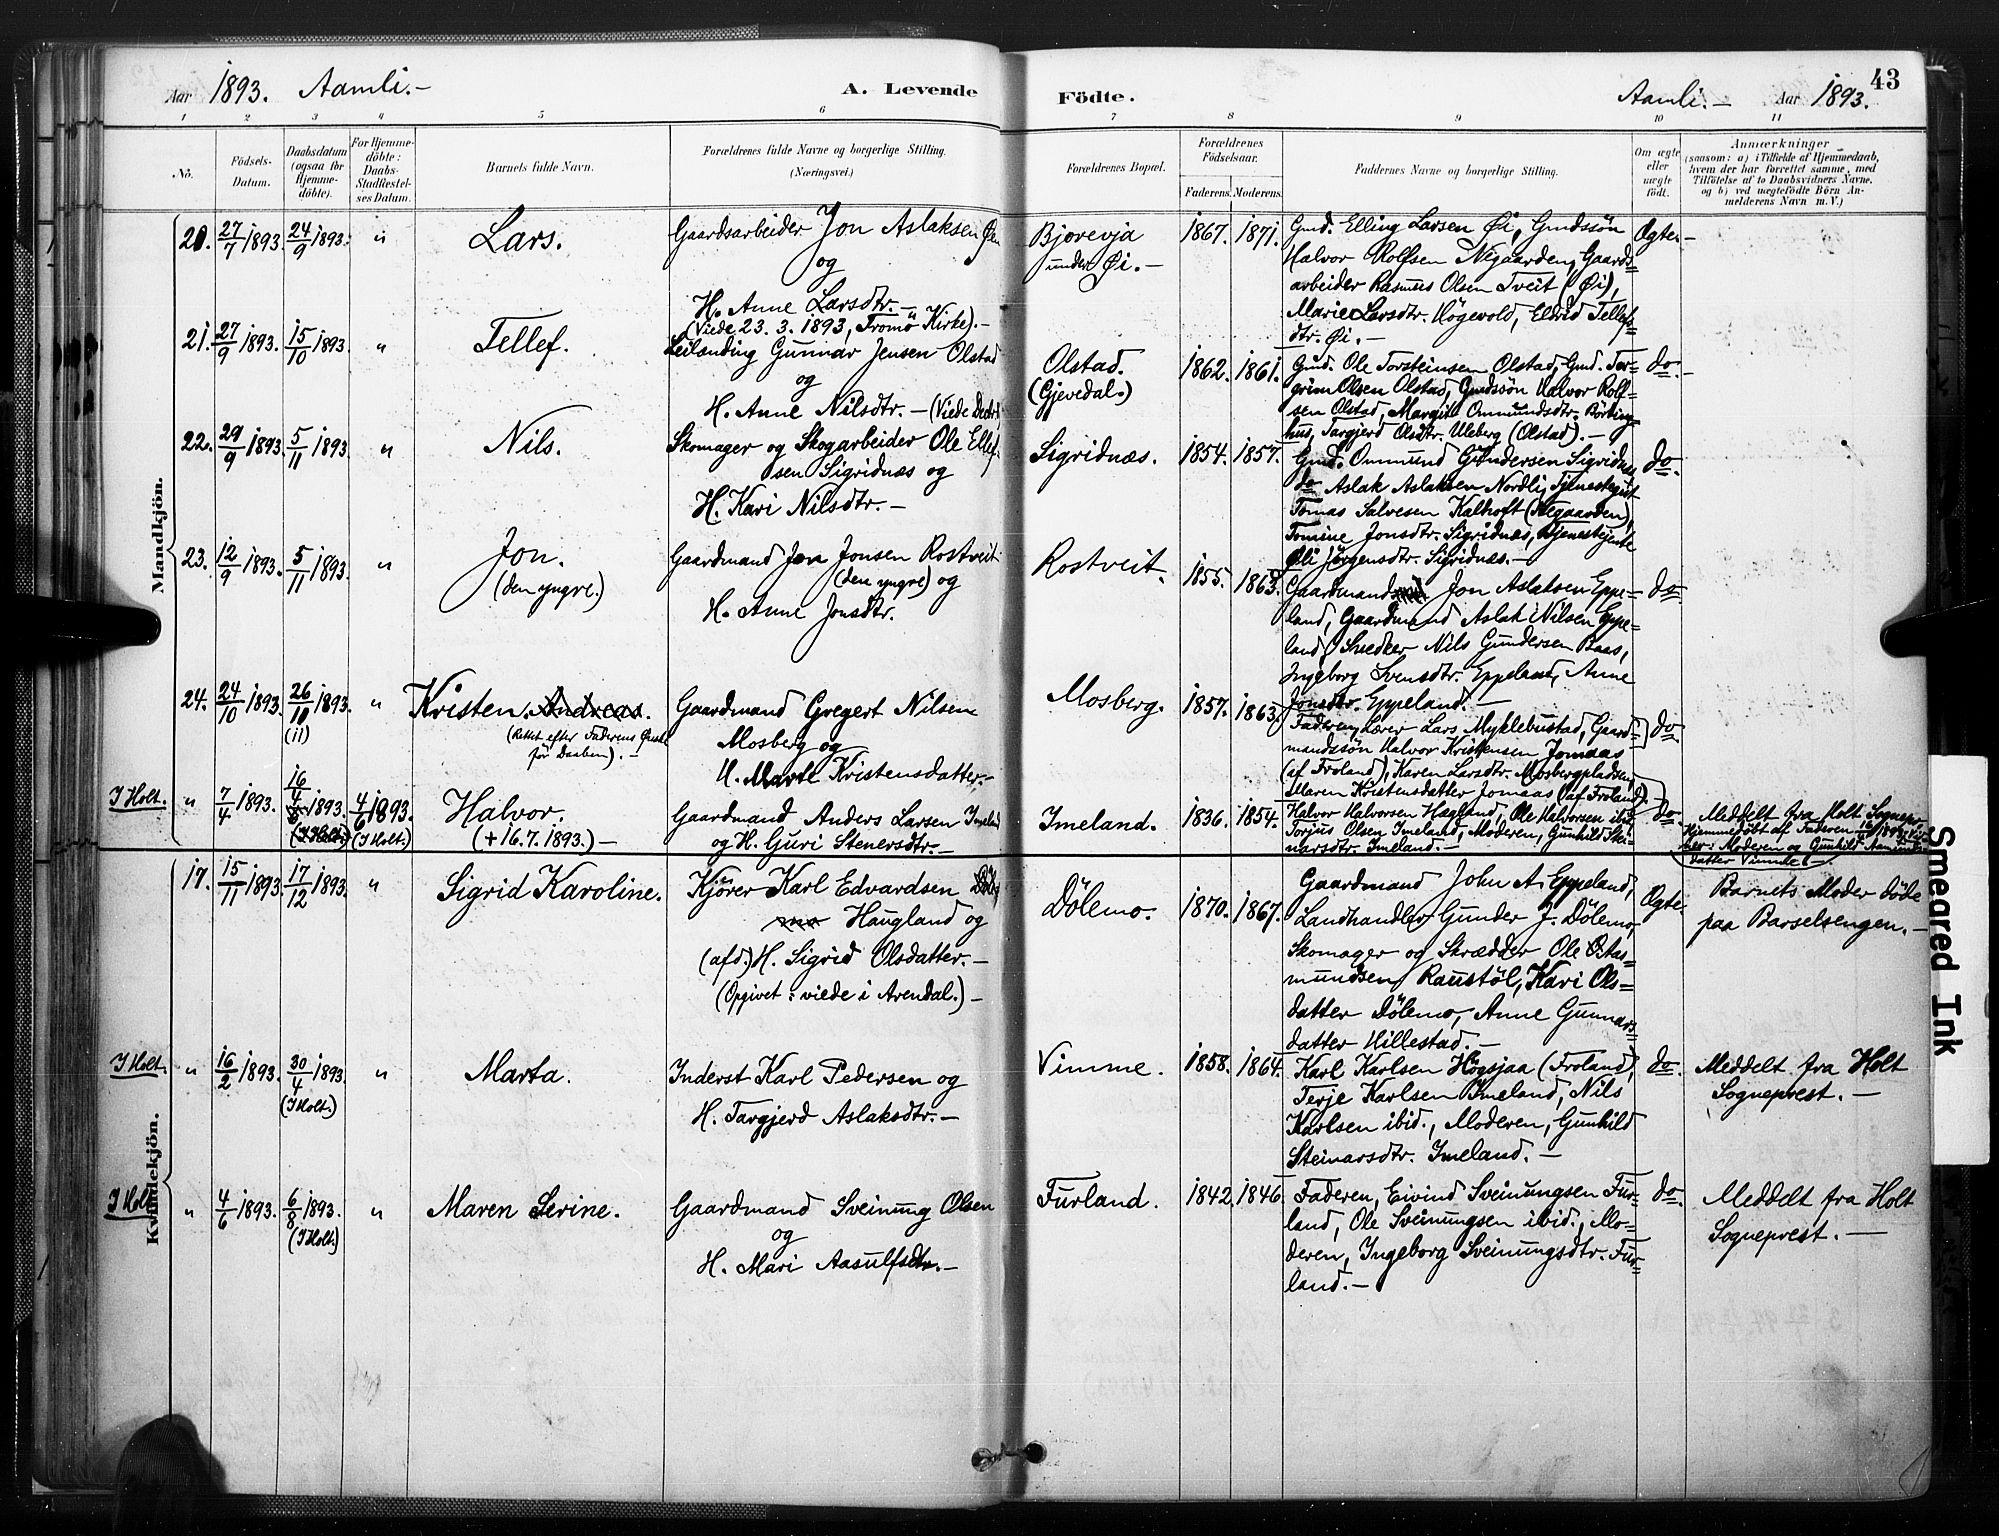 Aar 1893. Aamli.- A. Levende
1 2 3 4 5 6
No.
Födsels-
Datum.
Daabsdatum
(ogsaa for
Hjemme-
döbte).
For Hjemme-
döbte:
Daabs-
Stadfæstel-
ses Datum.
Barnets fulde Navn.
Forældrenes fulde Navne og borgerlige Stilling.
(Næringsvei.)
Födte. Aamli.- Aar 1893. 43
7 8 9 10 11
Forældrenes Bopæl.
Forældrenes
Födselsaar.
Faderens. Moderens.
Faddernes Navne og borgerlige Stilling.
Om ægte
eller
uægte
født.
Anmærkninger
(saasom: a) i Tilfælde af Hjemmedaab,
hvem der har forrettet samme, med
Tilföielse af to Daabsvidners Navne,
og b) ved uægtefödte Börn An-
melderens Navn m. V.)
Mandkjön.
20. 27/7 1893. 24/9 1893. " Lars.
Gaardsarbeider Jon Aslaksen
og
H. Anne Larsdtr.-
(Viede 23.3.1893, Tromö Kirke).-
Bjorevja
under Øi.-
1867. 1871.
Gmd. Elling Larsen Øi, Gmdssön
Halvor Rolfsen Negaarden, Gaards=
arbeider Rasmus Olsen Tveit (Øi),
Marie Larsdtr. Högevold, Eldrid Tellefs=
dtr. Øi.-
Ægte.-
21. 27/9 1893. 15/10 1893. " Tellef.
Leilænding Gunnar Jensen Olstad
og
H. Anne Nilsdtr.-
Olstad.
(Gjevedal.)
1862. 1861.
Gmd. Ole Torsteinsen Olstad, Gmd. Tor=
grim Olsen Olstad, Gmdssön Halvor Rolf=
sen Olstad, Margit Ommundsdtr.
hus, Targjerd Olsdtr. Uleberg (Olstad).-
do.-
22. 29/9 1893. 5/11 1893. " Nils.
Skomager og Skogarbeider Ole Ellef=
sen Sigridnæs og
H. Kari Nilsdtr.-
Sigridnæs. 1854. 1857.
Gmd. Ommund Gundersen Sigridnæs
do Aslak Aslaksen Nordli, Tjenestegut
Tomas Salvesen Kalhoft (Negaarden),
Tomine Jonsdtr. Sigridnæs, Tjenestejente
Jörgensdtr. Sigridnæs.-
do.
23. 12/9 1893. 5/11 1893. " Jon.
(den yngre.)
Gaardmand Jon Jonsen Rostveit
(den yngre) og
H. Anne Jonsdtr.
Rostveit. 1855. 1863.
Gaardmand Jon Aslaksen Eppe=
land, Gaardmand Aslak Nilsen Eppe=
land, Snedker Nils Gundersen Baas,
Ingeborg Svensdtr. Eppeland, Anne
Jonsdtr. Eppeland.-
do.
24. 24/10 1893. 26/11 1893. (11) " Kristen. Andreas.
(Rettet efter Faderens Ønske
för Daaben).-
Gaardmand Gregert Nilsen
Mosberg og
H. Marte Kristensdatter.-
Mosberg. 1857. 1863.
Faderen, Lærer Lars Myklebustad, Gaard=
mandssön Halvor Kristensen Jomaas
(af Froland), Karen Larsdtr. Mosbergpladsen,
Maren Kristensdatter Jomaas (af Froland).-
do.
I Holt. " 7/4 1893. 16/4 1893. (I Holt.) 4/6 1893. (I Holt.) Halvor.
(+ 16.7.1893.)-
Gaardmand Anders Larsen Imeland
og H. Guri Stenersdtr.-
Imeland. 1836. 1854.
Halvor Halvorsen Hagland, Ole Halvorsen ibid.
Torjus Olsen Imeland, Moderen, Gunhild Stei=
narsdtr. Imeland.-
do. Meddelt fra Holt Sognepr.
Hjemmedöbt af Faderen
Moderen og Gunhild
datter Vimme.-
Kvindekjön.
17. 15/11 1893. 17/12 1893. " Sigrid Karoline.
Kjörer Karl Edvardsen
Haugland og
(afd.) H. Sigrid Olsdatter.-
(Opgivet: viede i Arendal.)-
Dölemo. 1870. 1867.
Gaardmand John A. Eppeland,
Landhandler Gunder J. Dölemo,
Skomager og Skrædder Ole
mundsen Raustöl, Kari Ols=
datter Dölemo, Anne Gunnars=
datter Hillestad.-
Ægte. Barnets Moder döde
paa Barselsengen.-
I Holt. " 16/2 1893. 30/4 1893. (I Holt.) " Marta.
Inderst Karl Pedersen og
H. Targjerd Aslaksdtr.-
Vimme. 1858. 1864.
Karl Karlsen Högsjaa (Froland),
Terje Karlsen Imeland, Nils
Karlsen ibid., Moderen, Gunhild
Steinarsdtr. Imeland.-
do. Meddelt fra Holt
Sogneprest.-
I Holt. " 4/6 1893. 6/8 1893. (I Holt.) " Maren Serine.
Gaardmand Sveinung Olsen
og
H. Mari Aasulfsdtr.-
Furland. 1842. 1846.
Faderen, Eivind Sveinungsen Fur=
land, Ole Sveinungsen ibid., Mo=
deren, Ingeborg Sveinungsdtr. Fur=
land.-
do. Meddelt fra Holt
Sogneprest.-
Smeared Ink